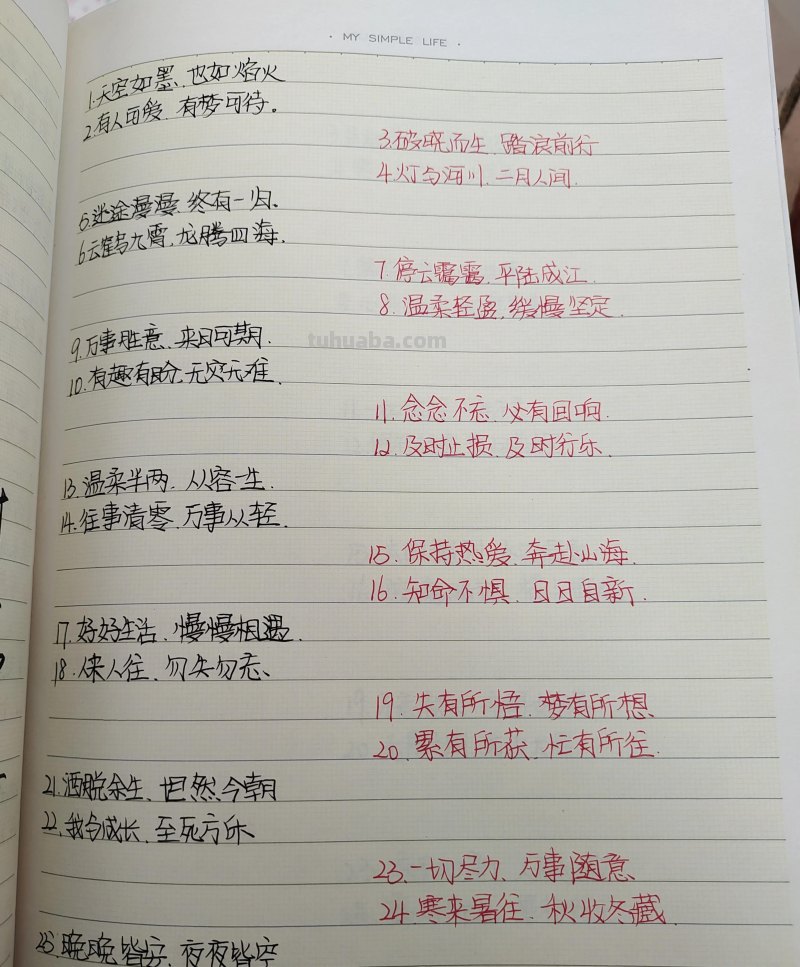 · MY SIMPLE LIFE ·
1.天空如墨,也如焰火
2.有人可爱,有梦可待。
3.破晓而生,踏浪前行
4.灯与河川,二月人间.
5.迷途漫漫,终有一归.
6.云鹤九霄,龙腾四海.
7.停云霭霭,平陆成江.
8.温柔轻盈,缓慢坚定.
9.万事胜意,来日可期.
10.有趣有盼,无灾无难.
tuhuaba.com
11.念念不忘,必有回响.
12.及时止损,及时行乐.
13.温柔半两,从容一生.
14.往事清零,万事从轻.
15.保持热爱,奔赴山海.
16.知命不惧,日日自新.
17.好好生活,慢慢相遇.
18.人来人往,勿失勿忘、
19.失有所悟,梦有所想、
20.累有所获,忙有所往.
21.洒脱余生、坦然今朝
22.我会成长、至死方休、
23.一切尽力、万事随意、
24.寒来暑往、秋收冬藏.
25.晚晚皆安、夜夜皆空